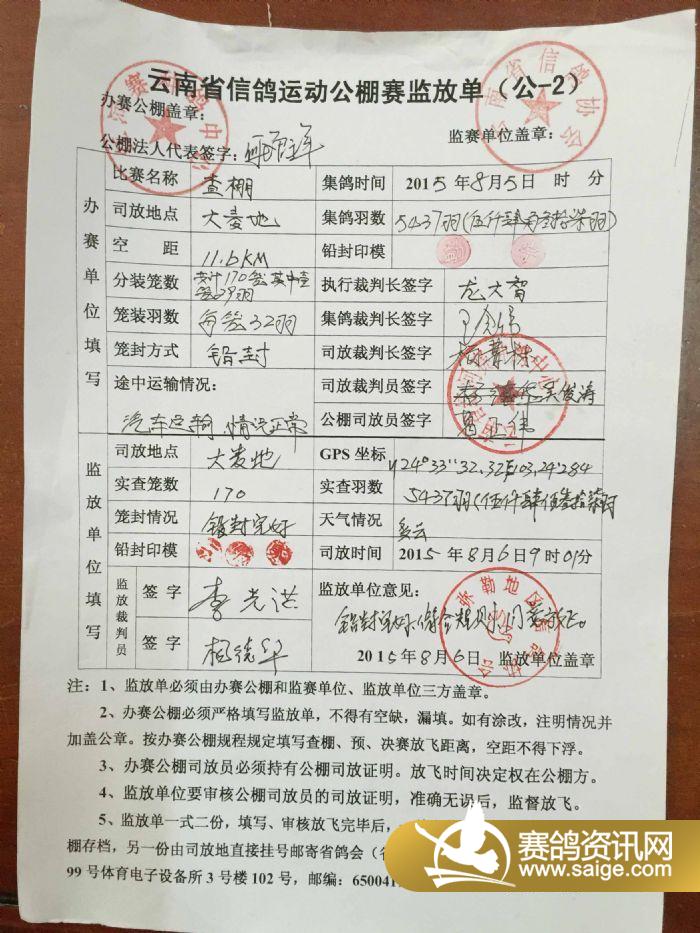 云南省信鸽运动公棚赛监放单（公-2）
办赛公棚盖章：
监赛单位盖章：
公棚法人代表签字：
办赛单位填写
比赛名称 查棚 集鸽时间 2015年8月5日 时 分
司放地点 大麦地 集鸽羽数 5437羽
空 距 11.6KM 铅封印模
分装笼数 共计170笼 执行裁判长签字 龙大智
笼装羽数 每笼32羽 集鸽裁判长签字
笼封方式 铅封 司放裁判长签字
途中运输情况： 司放裁判员签字 吴俊涛
汽车运输 情况正常 公棚司放员签字
监放单位填写
司放地点 大麦地 GPS 坐标
实查笼数 170 实查羽数 5437羽
笼封情况 铅封完好 天气情况 多云
铅封印模 司放时间 2015年8月6日9时01分
监放裁判员
签 字 李光洪 监放单位意见：
铅封完好
签 字 杨德华 2015年8月6日 监放单位盖章
注：1、监放单必须由办赛公棚和监赛单位、监放单位三方盖章。
2、办赛公棚必须严格填写监放单，不得有空缺，漏填。如有涂改，注明情况并
加盖公章。按办赛公棚规程规定填写查棚、预、决赛放飞距离，空距不得下浮。
3、办赛公棚司放员必须持有公棚司放证明。放飞时间决定权在公棚方。
4、监放单位要审核公棚司放员的司放证明，准确无误后，监督放飞。
5、监放单一式二份，填写、审核放飞完毕后，
棚存档，另一份由司放地直接挂号邮寄省鸽会（
99号体育电子设备所3号楼102号，邮编：65004
赛鸽资讯网
www.saige.com